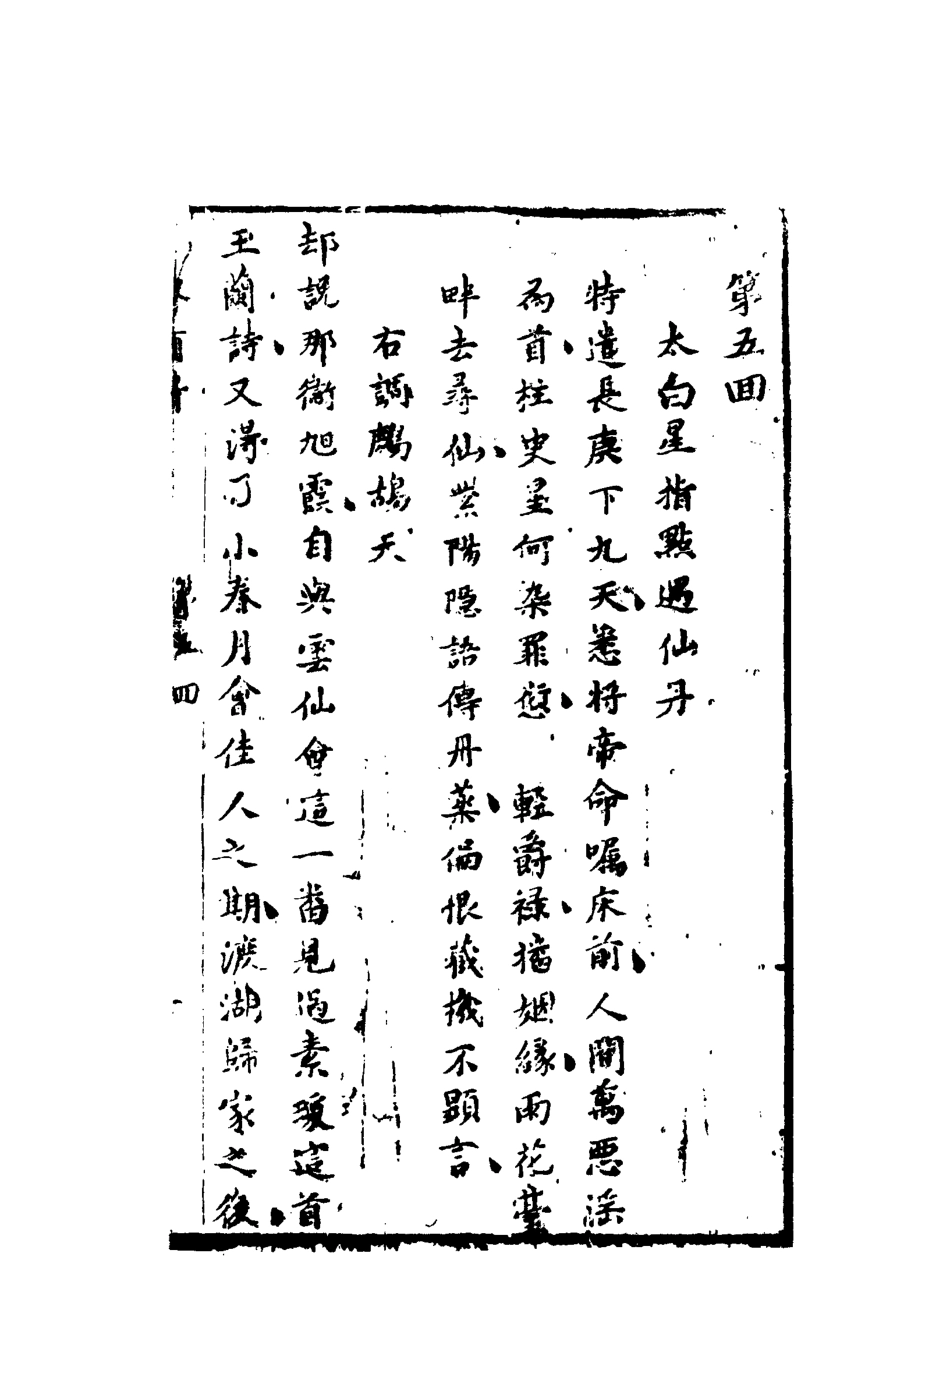 第五回
太白星指點遇仙丹
特遣長庚下九天悉將帝命囑床前人間萬惡淫
為首柱史星何染罪愆　輕爵祿猶姻緣雨花臺
畔去尋仙紫陽隱語傳丹藥偏恨藏機不顕言
右調鷓鴣天
却説那衛旭霞自與雲仙會這一番見過素瓊這首
玉蘭詩又得了小春月會佳人之期渡湖歸家之後
四